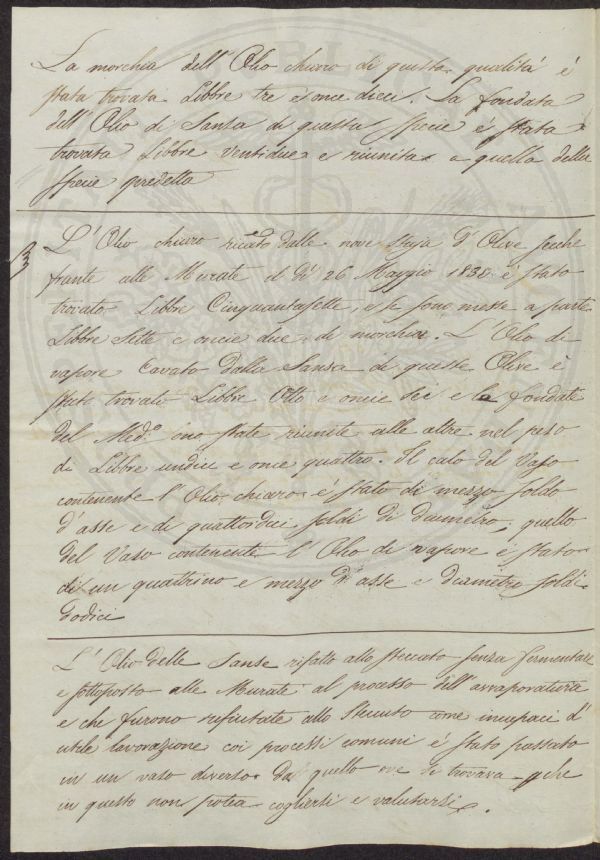 La morchia dell'Olio chiaro di questa qualità è
stata trovata Libbre tre e once dieci. La fondata
dell'Olio di Sansa di questa specie è stata
trovata Libbre ventidue e riunita a quella della
specie predetta
L'Olio chiaro ricavato dalle nove staja d'Olive secche
frante alle Murate il dì 26 Maggio 1838 è stato
trovato Libbre Cinquantasette, e se sono messe a parte
Libbre Sette e oncie due di morchia. L'Olio di
vapore cavato dalla Sansa di queste Olive è
stato trovato Libbre Otto e oncie sei e le fondate
del Med.o sono state riunite alle altre nel peso
di Libbre undici e once quattro. Il calo del Vaso
contenente l'Olio chiaro è stato di mezzo soldo
d'asse e di quattordici soldi di diametro, quello
del Vaso contenente l'Olio di vapore è stato
di un quattrino e mezzo d'asse e diametro soldi
dodici
L'Olio delle Sanse rifatto allo steccuto senza fermentare
e sottoposto alle Murate al processo dell'avvaporatura
e che furono rifiutate allo Steccuto come incapaci d'
utile lavorazione coi processi comuni è stato passato
in un vaso diverso da quello ove si trovava
in questo non potea cogliersi e valutarsi.